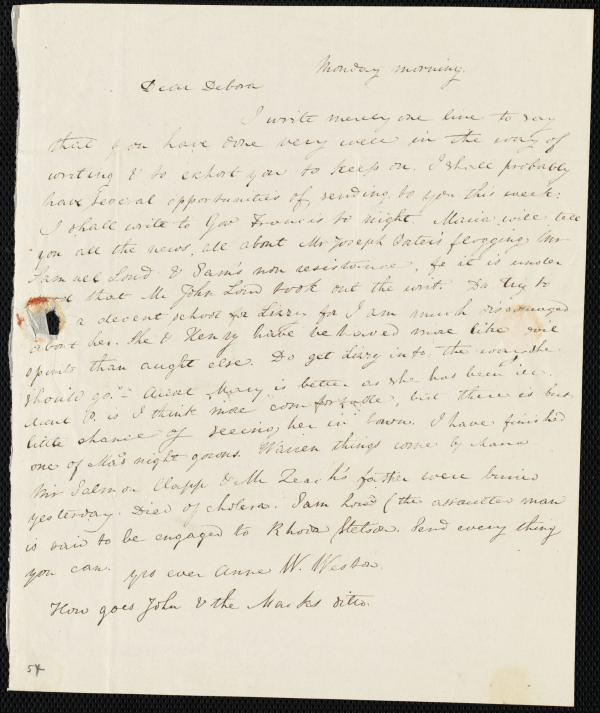 Monday morning.
Dear Debora
I write merely one line to say
that you have done very well in the way of
writing & to exhort you to keep on. I shall probably
have several opportunities of sending to you this week.
I shall write to Gov Francis to night Maria will tell
you all the news, all about Mr Joseph flogging Mr
Samuel Loud & Sam's non resistance, & it is under
that Mr John Loud took out the writ. Do try to
a decent school for Lizzy for I am much discouraged
about her. She & Henry have behaved more like evil
spirits than aught else. Do get Lizzy into "the way she
should go." Aunt Mary is better as she has been ill.
Aunt P. is I think more comfortable, but there is but
little chance of seeing her in town. I have finished
one of Ma's night gowns. Warren things come by
Mr Salmon Clapp & Mr Leach's father were buried
yesterday. Died of cholera. Sam Loud (the assaulted man
is said to be engaged to Rhoda Stetson. Send every thing
you can. yrs ever Anne W. Weston.
How goes John & the Marks ditto.
54